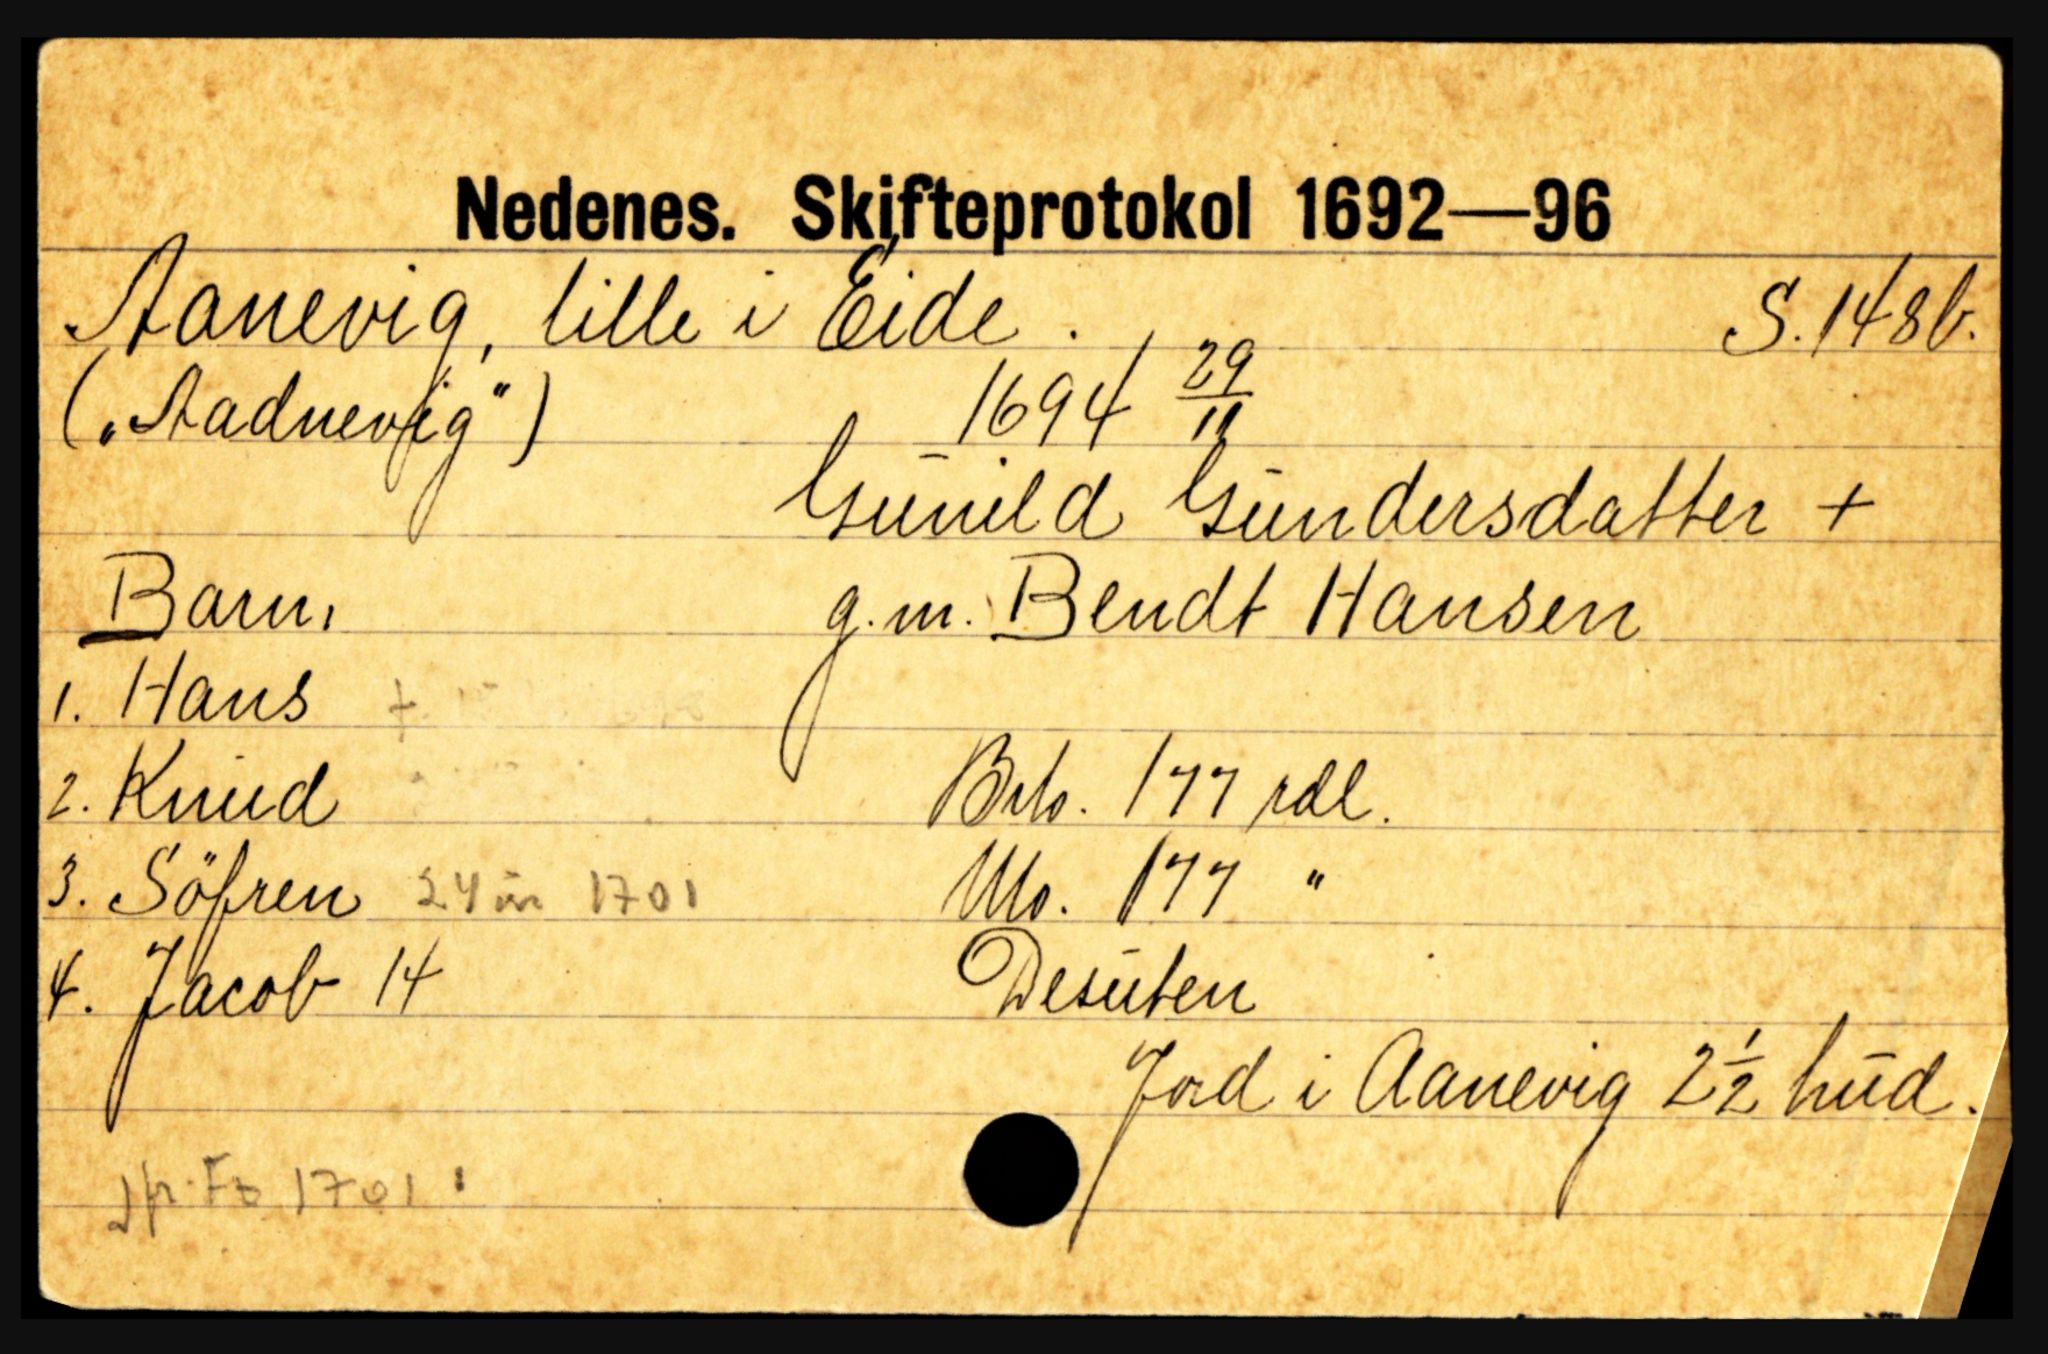 Nedenes. Skifteprotokol 1692—96
Aanevig, lille i Eide. S. 148b.
("Aadnevfig") 1694 29/11
Gunild Gundersdatter +
Barn. g.m. Bendt Hansen
1. Hans +
2. Knud Brto. 177 rdl.
3. Söfren 24 år 1701 Nto. 177 "
4. Jacob 14 Desuten
Jord i Aanevig 2 1/2 hud.
jfr. 1701